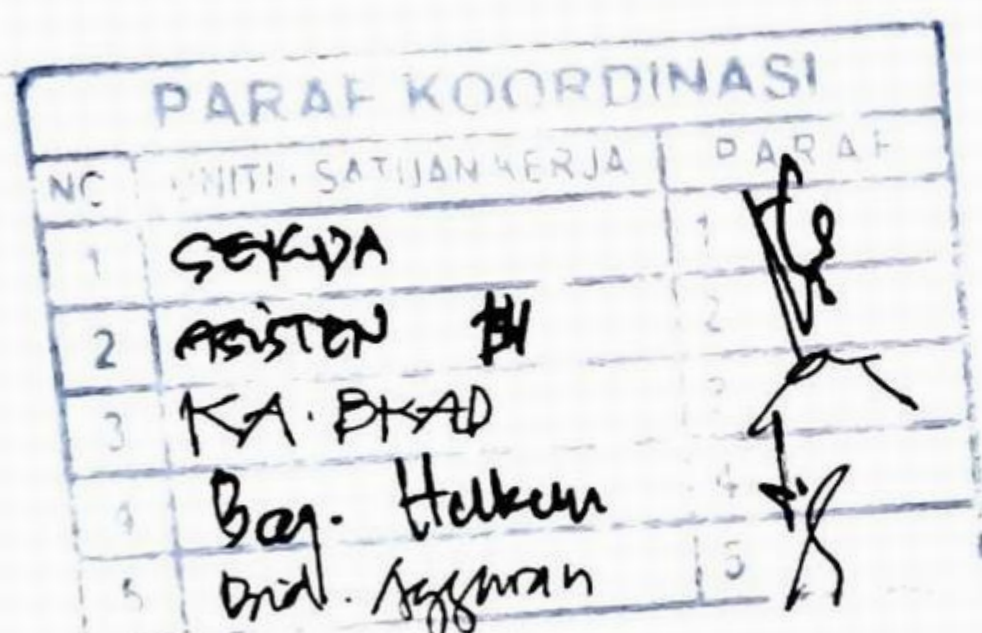 PARAF KOORDINASI
NO UNIT / SATUAN KERJA PARAF
1 SEKDA 1
2 ASISTEN 2
3 KA. BKAD 3
4 Bag. Hukum 4
5 Bid. Anggaran 5